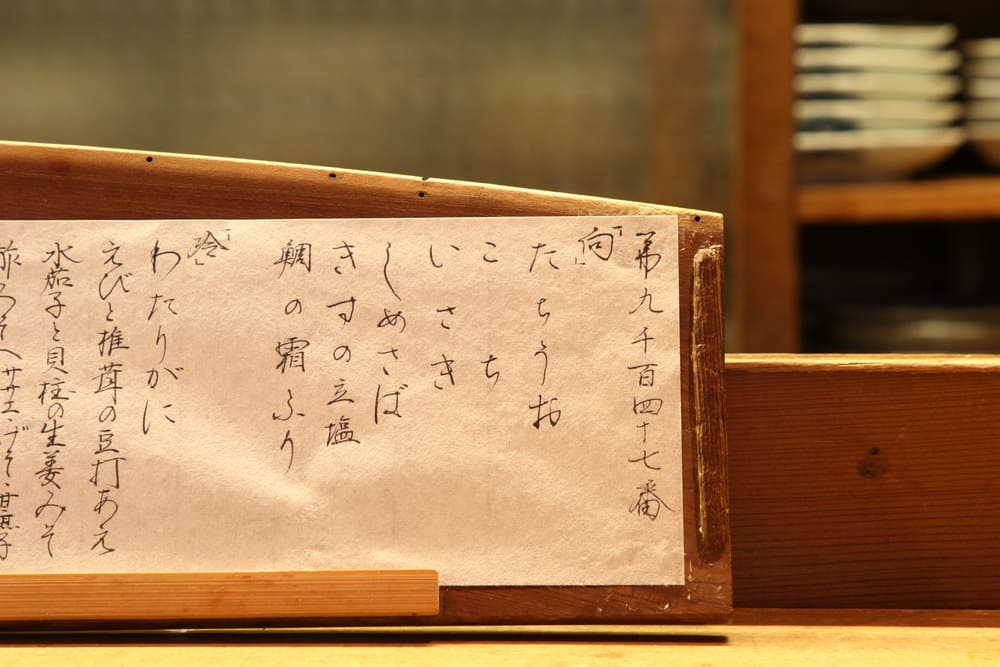 第九千百四十七番
「向」
たちうお
こち
いさき
しめさば
きすの立塩
鯛の霜ふり
「冷」
わたりがに
えびと椎茸の豆打あえ
水茄子と貝柱の生姜みそ